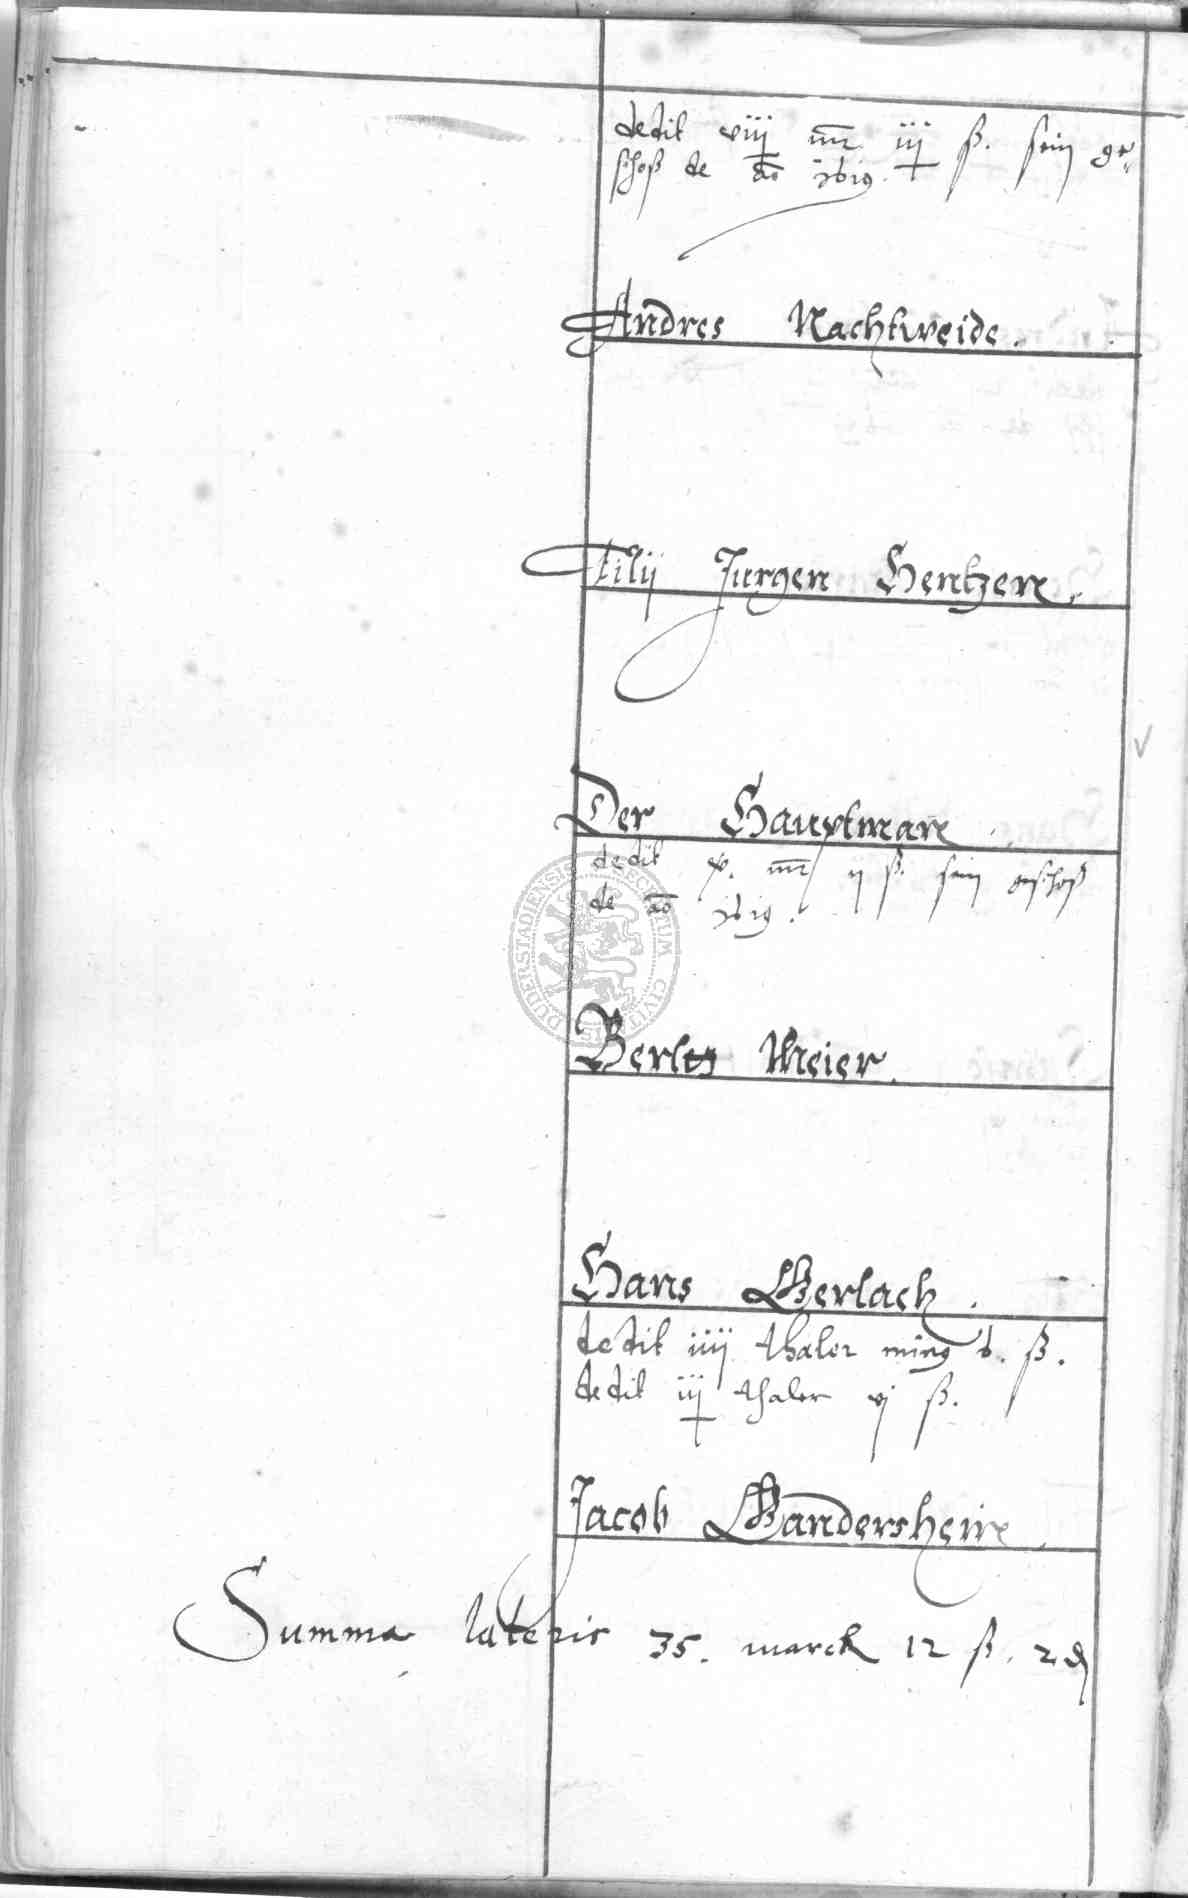 dedit viiij mr iij ß. sein ge-
schoß de ao 1619.
Andres Nachtweide.
Filij Jurgen Hentzen.
Der Hauptman
dedit x. mr ij ß. sein geschoß
de ao 1619.
DUDERSTADIENSIS SECRETUM CIVITATIS
Meier.
Hans Gerlach.
dedit iiij thaler ming v. ß.
dedit iij thaler vj ß.
Jacob Gandersheim
Summa lateris 35. marck 12 ß. 2 ₰